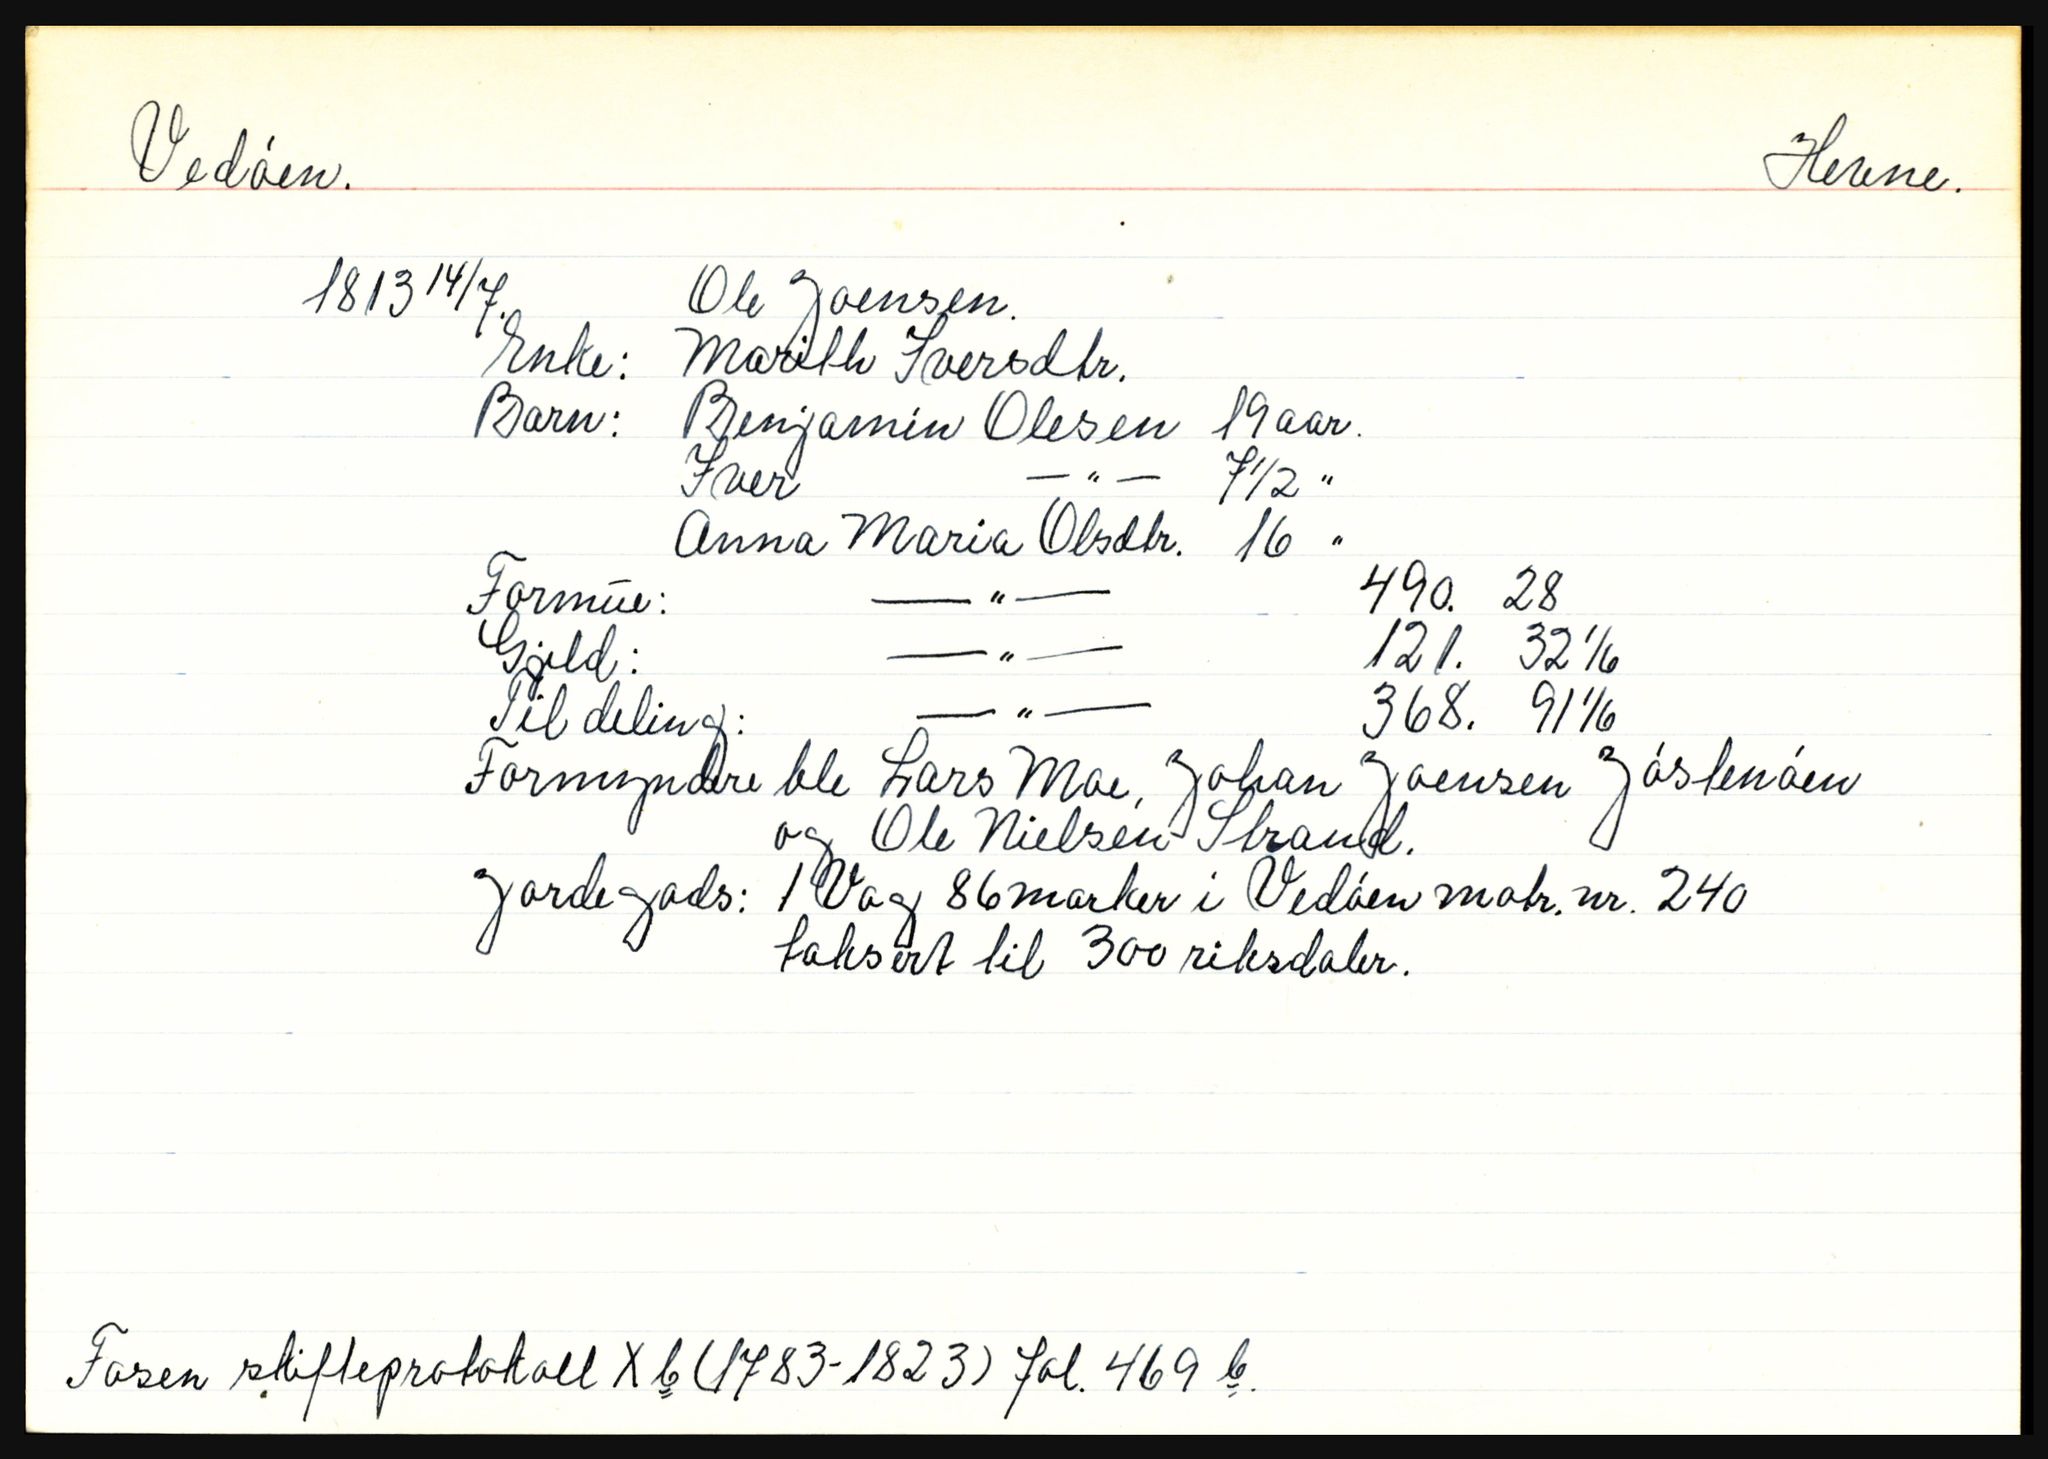 Vedóen. Hevne.
1813 14/7. Ole Joensen.
Enke: Marith Iversdtr.
Barn: Benjamin Olesen 19 aar.
Iver — " — 7 1/2 "
Anna Maria Olsdtr. 16 "
Formue: — " — 490. 28
Gjeld: — " — 121. 32 1/6
Til deling: — " — 368. 91 1/6
Formyndere ble Lars Moe, Johan Joensen Jóstenóen
og Ole Nielsen Strand.
Jordegods: 1 Vog 86 marker i Vedóen matr. nr. 240
taksert til 300 riksdaler.
Fosen skifteprotokoll X b (1783-1823) fol. 469 b.